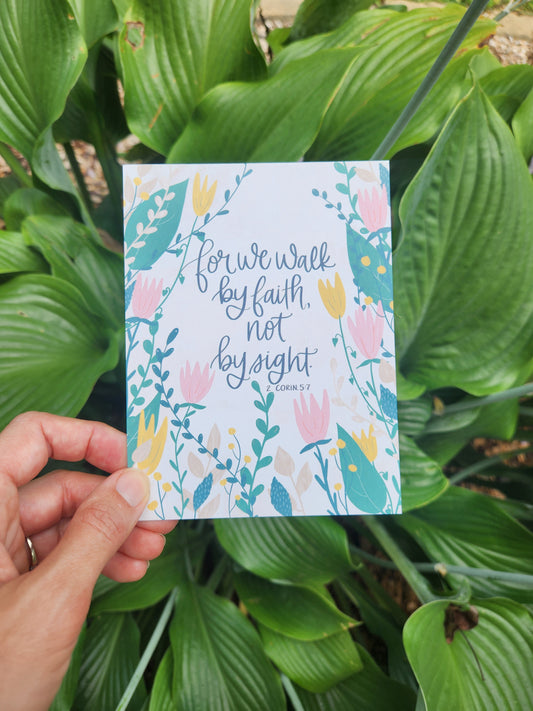 for we walk
by faith,
not
by sight.
2 CORIN. 5:7